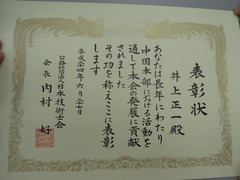 表彰状
井上正一殿
あなたは長年にわたり
中国本部における活動を
通して本会の発展に貢献
されました
その功を称えここに表彰
します
平成二十四年六月二十七日
公益社団法人日本技術士会
会長 内村 好